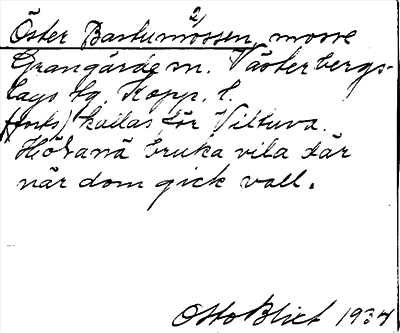 2)
Öster Bastumossen, mosse
Grangärde m. Västerbergs-
lags tg Kopp. l.
(forts) kallas för Viltuva.
Hörana bruka vila där
när dom gick vall.
Otto Blixt 1934